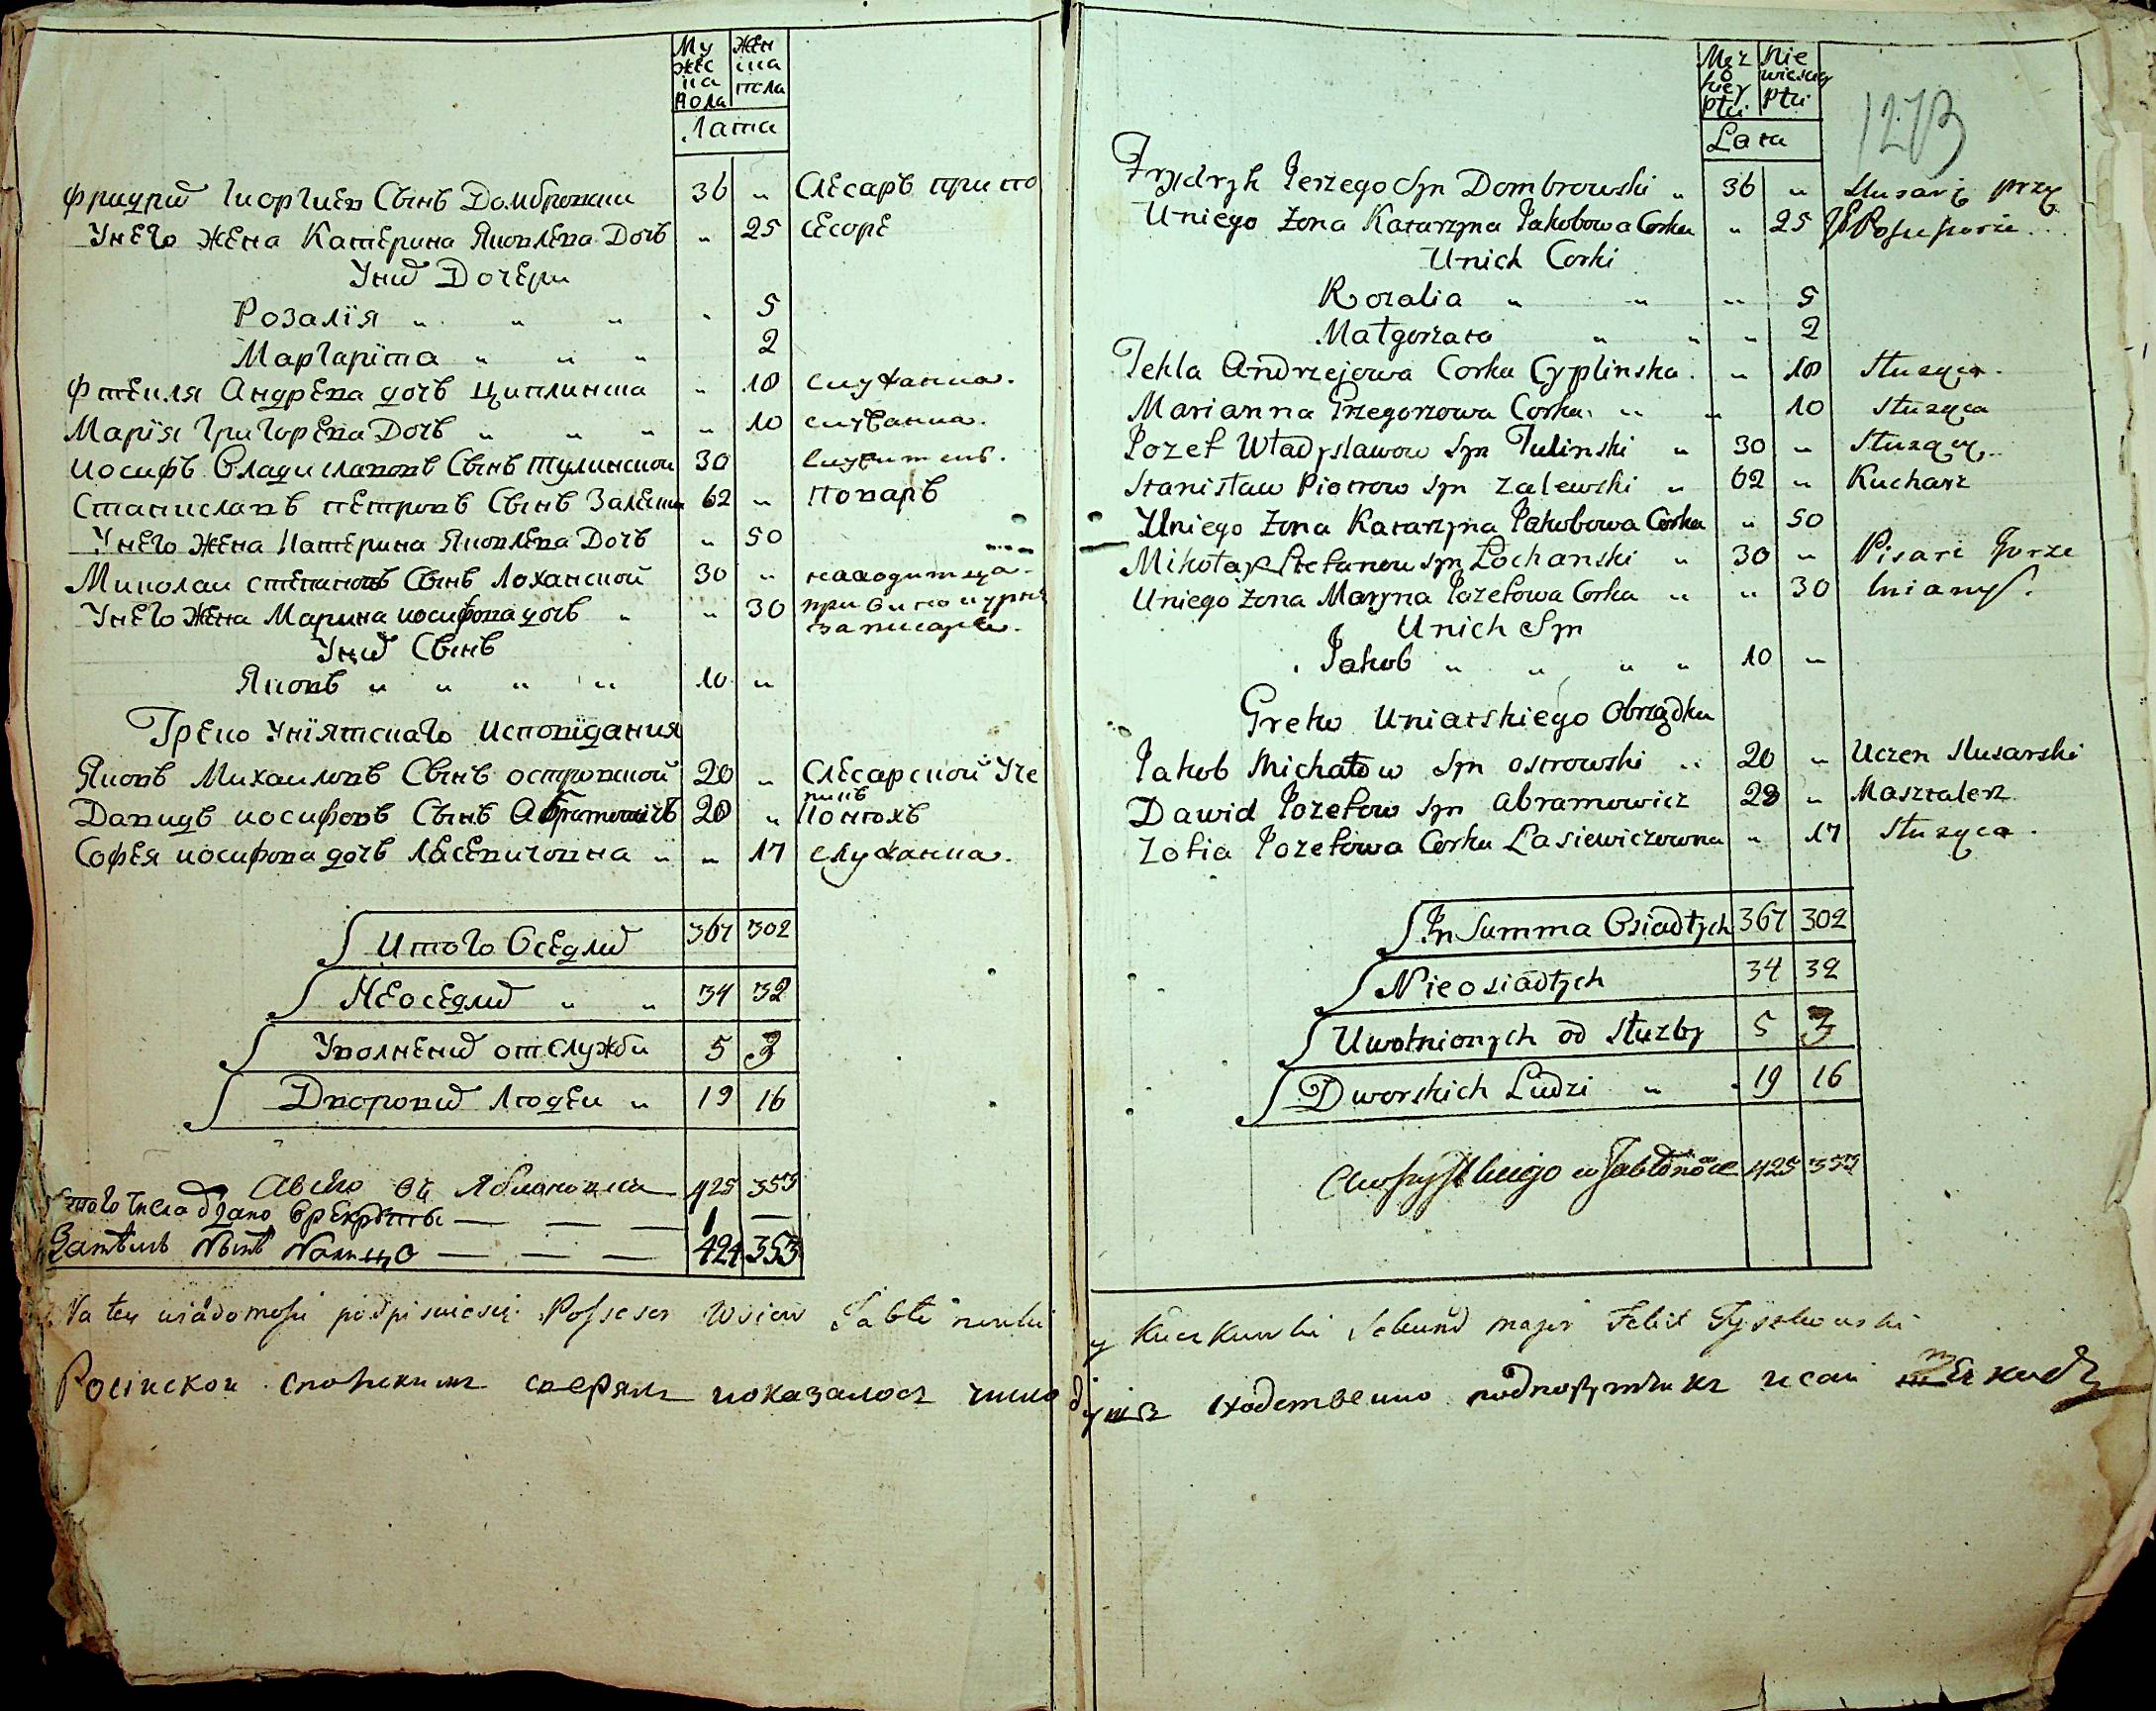 Му жес па пола
Жен ша пола
Лата
Фридрих Георгиев Сынъ Домбровски 36 „ Слесаръ при по
У него Жена Катерина Яковлева Дочъ „ 25 сесоре
У них Дочери
Розалїя „ „ „ „ 5
Маргарїта „ „ „ 2
Фтекля Андрева дочъ Циплинска „ 18 служанка.
Марїя Григорева Дочъ „ „ „ „ 10 служанка.
Иосифъ Владиславовъ Сынъ Тулинской 30 служитель.
Станиславъ Петровъ Сынъ Залески 62 „ Поваръ
У него Жена Катерина Яковлева Дочъ „ 50
Миколаи Степановъ Сынъ Лоханской 30 „ находитца
У него Жена Марина иосифова дочъ „ „ 30 при
за писаря.
У них Сынъ
Яковъ „ „ „ „ 10 „
Греко Унїятскаго Исповїдания
Яковъ Михаиловъ Сынъ островской 20 „ Слесарской Уче
никъ
Давидъ иосифовъ Сынъ Абрамовичъ 28 „ Конюхъ
Софея иосифова дочъ Ласевичовна „ „ 17 служанка.
Итого Оседлих 367 302
Неоседлих „ „ 34 32
Уволнених от Службы 5 3
Дворових Людеи „ 19 16
Авсего 425 353
того числа здано в рекруты — — — 1 —
Затемъ налицо — — — 424 353
Męz kiey płci
Nie wiesciey płci
Lata
1273
Frydryk Jerzego Syn Dombrowski „ 36 „ Slusarz przy
U niego Zona Katarzyna Jakobowa Corka „ 25
U nich Corki
Rozalia „ „ „ 5
Małgorzata „ „ „ 2
Tekla Andrzejowa Corka Cyplinska. „ 18 Słuząca.
Marianna Grzegorzowa Corka. „ „ 10 Słuząca
Jozef Władysławow Syn Tulinski „ 30 „ Słuzący
Stanisław Piotrow Syn Zalewski „ 62 „ Kucharz
U niego Zona Katarzyna Jakobowa Corka „ 50
Mikołay Stefanow Syn Lochanski „ 30 „ Pisarz Gorze
U niego Zona Maryna Jozefowa Corka „ „ 30 lniany.
U nich Syn
Jakob „ „ „ „ 10 „
Greko Uniatskiego Obrządku
Jakob Michałow Syn Ostrowski „ 20 „ Uczen Slusarski
Dawid Jozefow Syn Abramowicz 28 „ Masztalerz
Zofia Jozefowa Corka Lasiewiczowna „ 17 Słuząca.
In Summa Osiadłych 367 302
Nieosiadłych 34 32
Uwolnionych od Słuzby 5 3
Dworskich Ludzi „ 19 16
w Jabłonowce 425 353
Na tey wiadomosci podpisuie się Possesor Wsiow y Kuczkowki Sekund major Felix Tyszkowski
показалось число душъ сходственно